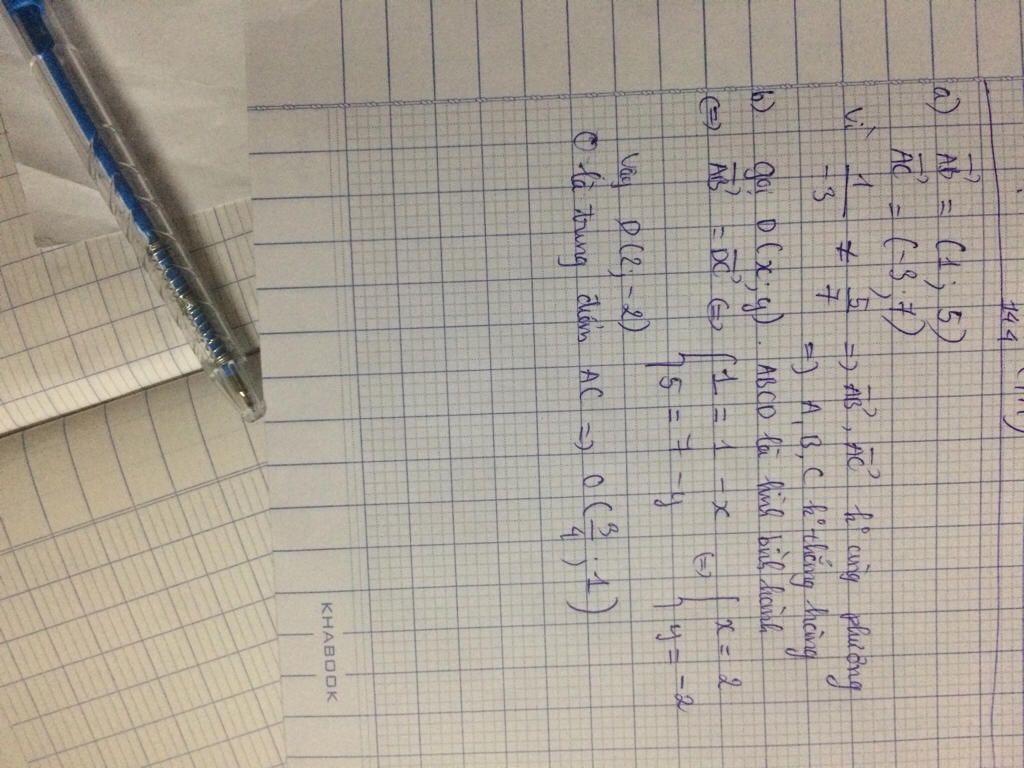 14.4
a) AB = (1; 5)
AC = (-3; 7)
Vì 1/-3 ≠ 5/7 => AB, AC ko cùng phương
=> A, B, C ko thẳng hàng
b) Gọi D(x; y). ABCD là hình bình hành
(=) AB = DC (=) { 1 = 1 - x (=) { x = 2
{ 5 = 7 - y { y = -2
Vậy D(2; -2)
O là trung điểm AC => O(3/4; 1)
KHABOOK